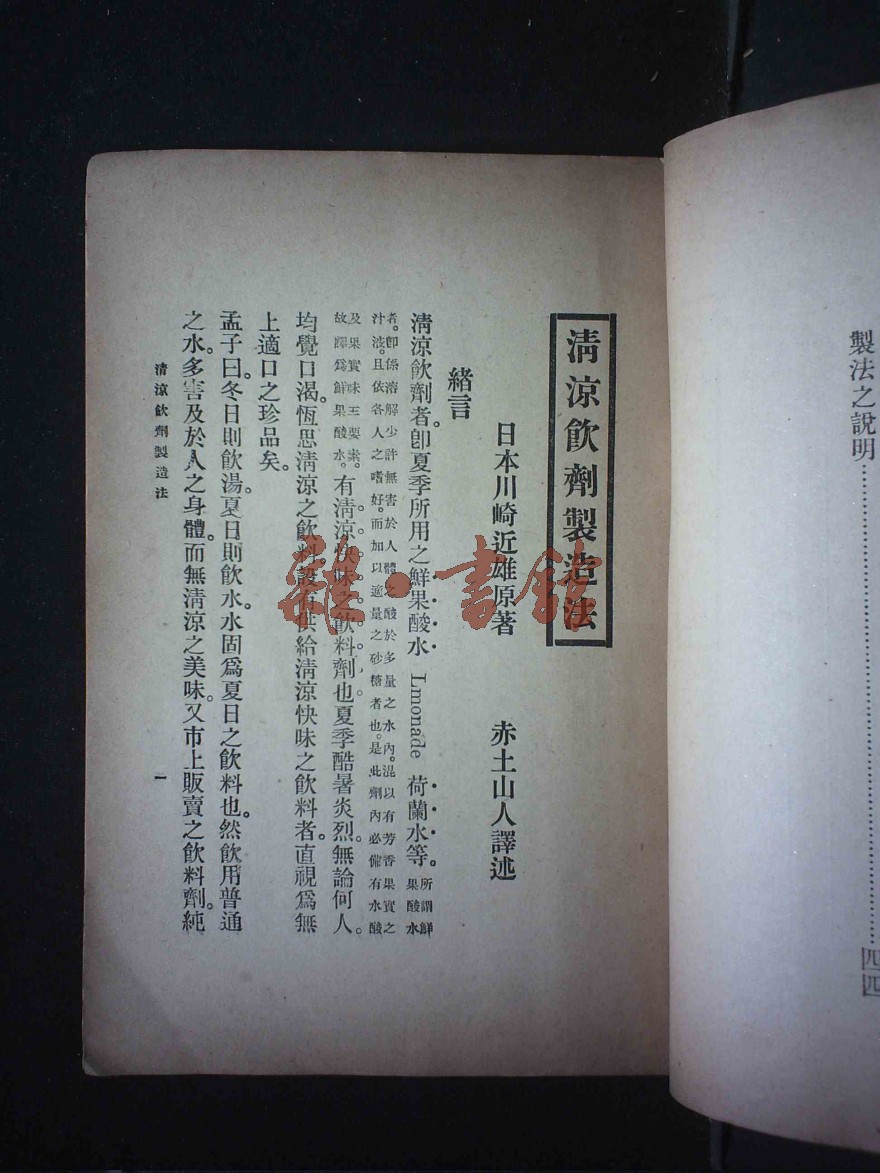 製法之說明……………………四四
清涼飲劑製造法
日本川崎近雄原著　赤土山人譯述
緒言
清涼飲劑者。卽夏季所用之鮮果酸水 Lmonade 荷蘭水等。所謂鮮果酸水
者。卽係溶解少許無害於人體之酸於多量之水內。混以有芳香果實之
汁液。且依各人之嗜好。而加以適量之砂糖者也。是此劑內必備有水酸
及果實味三要素。故譯爲鮮果酸水。有清涼快味之飲料劑也。夏季酷暑炎烈。無論何人。
均覺口渴。恆思清涼之飲料。設有供給清涼快味之飲料者。直視爲無
上適口之珍品矣。
孟子曰。冬日則飲湯。夏日則飲水。水固爲夏日之飲料也。然飲用普通
之水。多害及於人之身體。而無清涼之美味。又市上販賣之飲料劑。純
清涼飲劑製造法　一
雜·書館